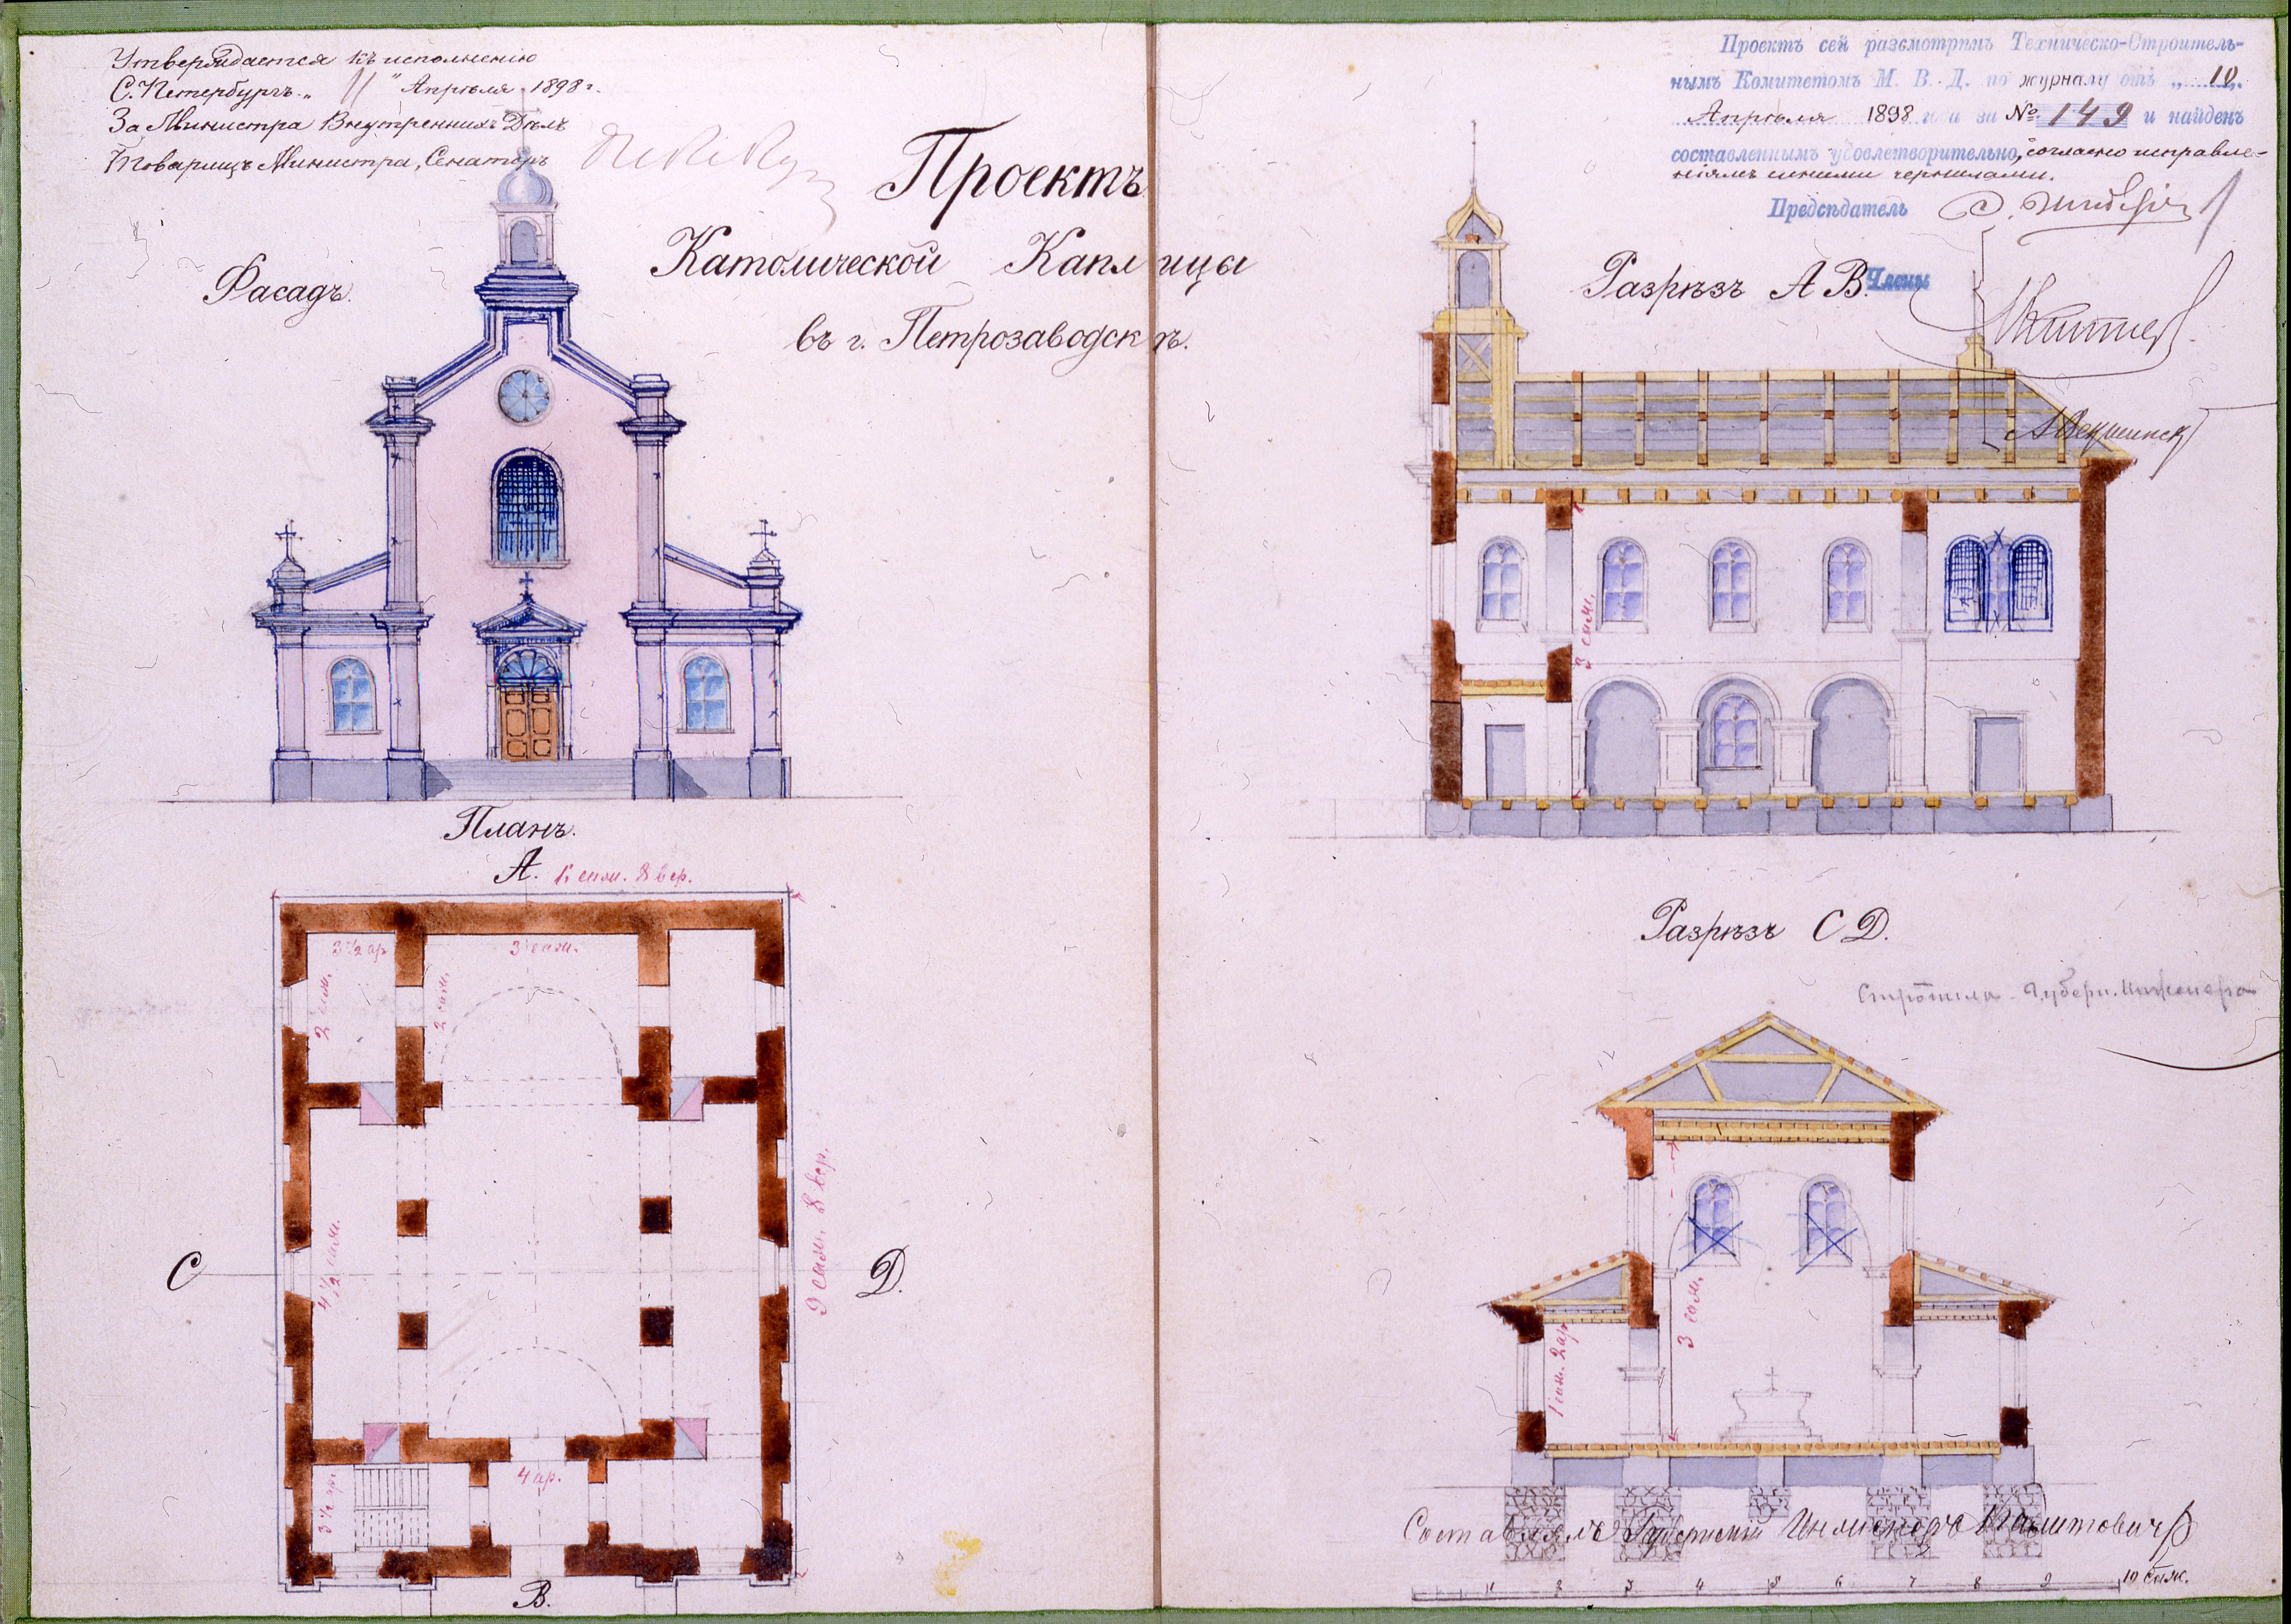 Утверждается къ исполненію
С. Петербургъ „11" Апрѣля 1898 г.
За Министра Внутреннихъ Дѣлъ
Товарищъ Министра, Сенаторъ
Проектъ
Католической Каплицы
въ г. Петрозаводскѣ.
Фасадъ.
Проектъ сей разсмотрѣнъ Техническо-Строитель-
нымъ Комитетомъ М. В. Д. по журналу отъ „10„
Апрѣля 1898 года за № 149 и найденъ
составленнымъ удовлетворительно, согласно исправле-
ніямъ синими чернилами.
Предсѣдатель
Разрѣзъ А В.
Члены
3 саж.
Планъ.
А.
саж. 8 вер.
3 1/2 ар
3 саж.
2 саж.
2 саж.
4 1/2 саж.
9 саж. 8 вер.
С
Д.
3 1/2 ар.
4 ар.
В.
Разрѣзъ С Д.
Губерн. Инженера
3 саж.
1 саж. 2 ар
Составлялъ Губернскій Инженеръ
1 2 3 4 5 6 7 8 9 10 саж.